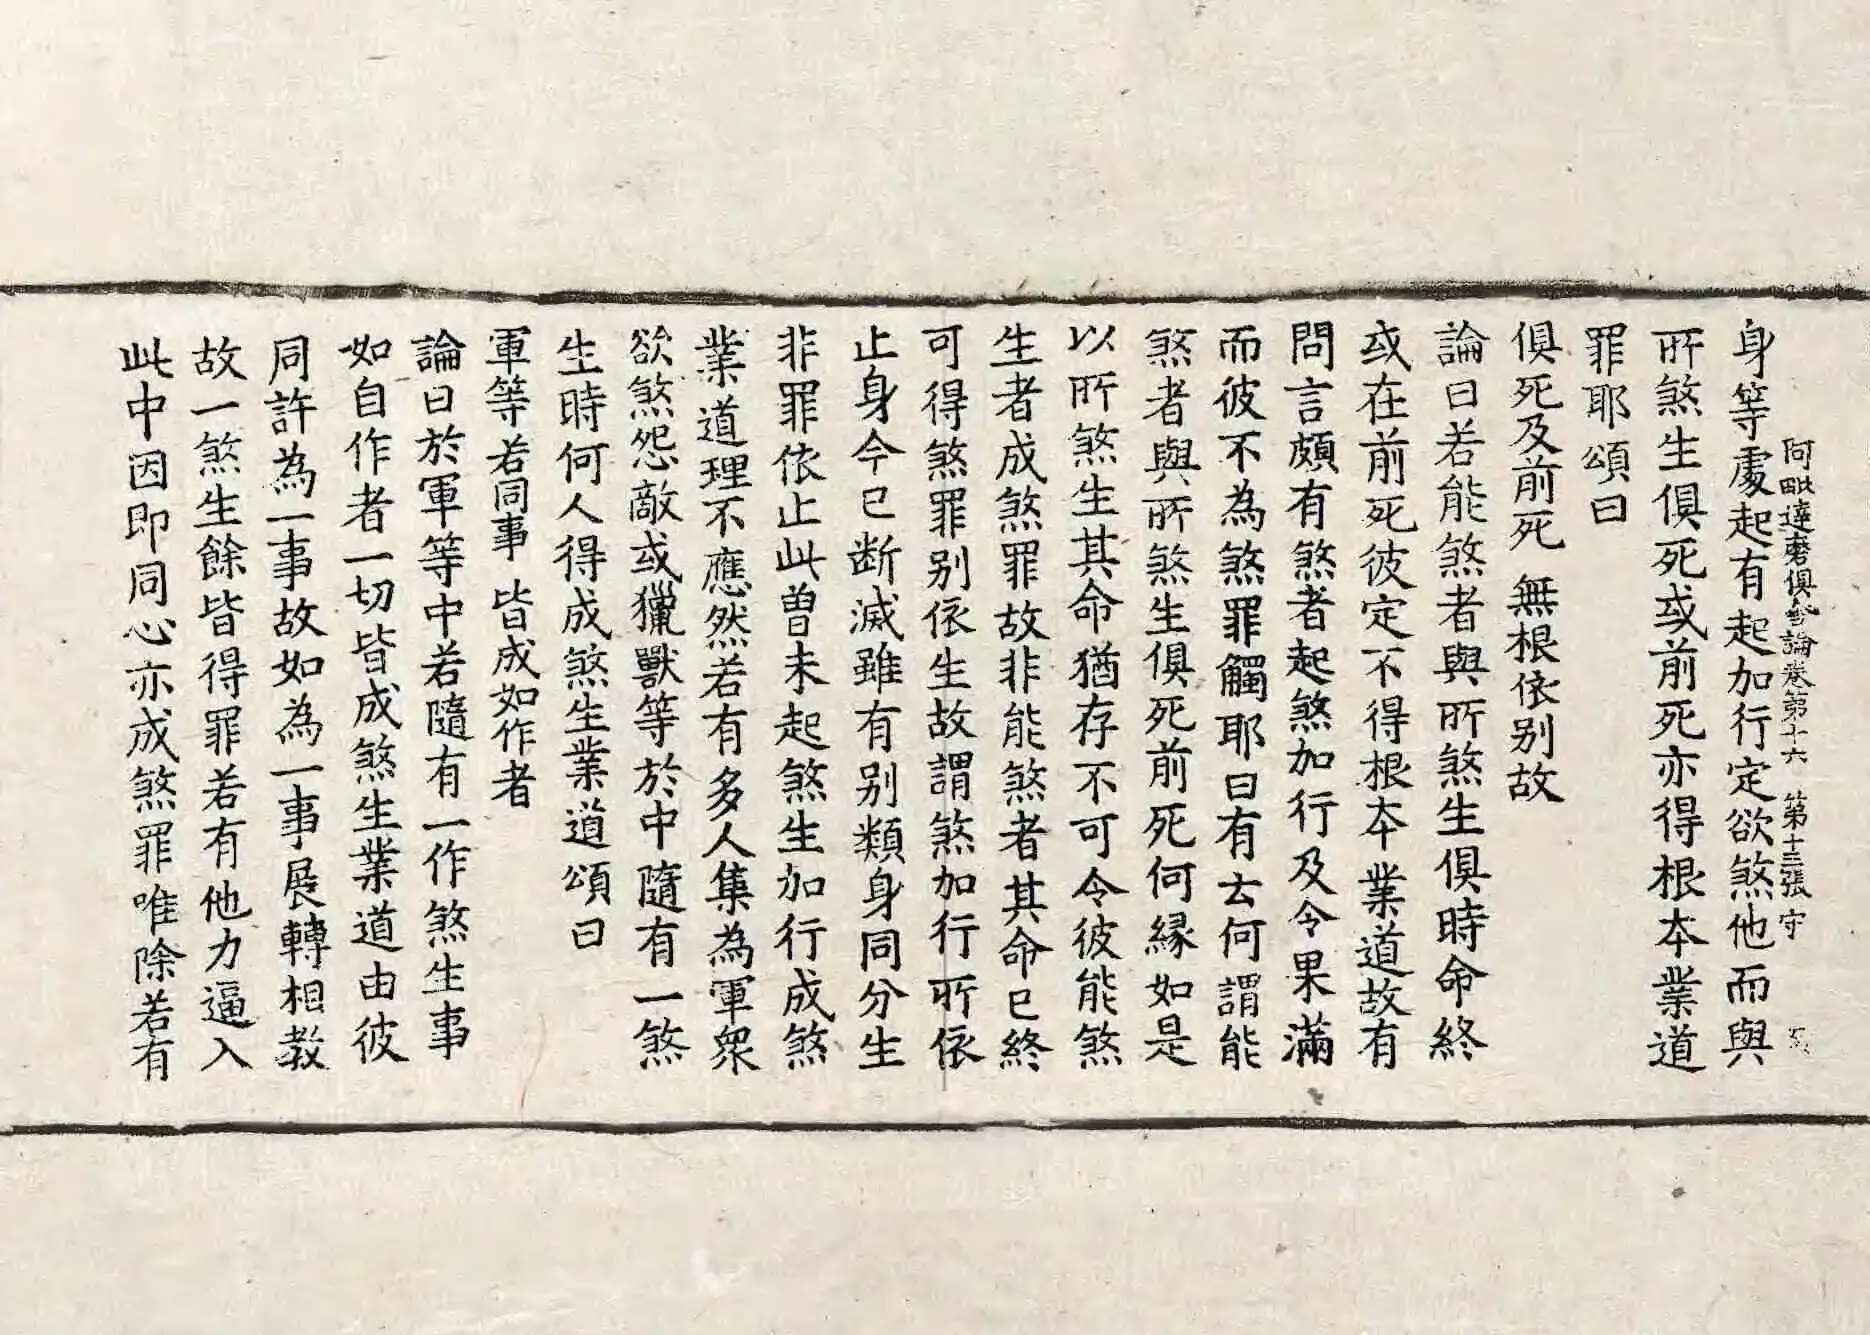 阿毗達磨俱舍論卷第十六 第十三張 守
身等處起有起加行定欲煞他而與
所煞生俱死或前死亦得根本業道
罪耶頌曰
俱死及前死 無根依别故
論曰若能煞者與所煞生俱時命終
或在前死彼定不得根本業道故有
問言頗有煞者起煞加行及令果滿
而彼不為煞罪觸耶曰有云何謂能
煞者與所煞生俱死前死何緣如是
以所煞生其命猶存不可令彼能煞
生者成煞罪故非能煞者其命已終
可得煞罪别依生故謂煞加行所依
止身今已断滅雖有别類身同分生
非罪依止此曾未起煞生加行成煞
業道理不應然若有多人集為軍衆
欲煞怨敵或獵獸等於中隨有一煞
生時何人得成煞生業道頌曰
軍等若同事 皆成如作者
論曰於軍等中若隨有一作煞生事
如自作者一切皆成煞生業道由彼
同許為一事故如為一事展轉相教
故一煞生餘皆得罪若有他力逼入
此中因即同心亦成煞罪唯除若有